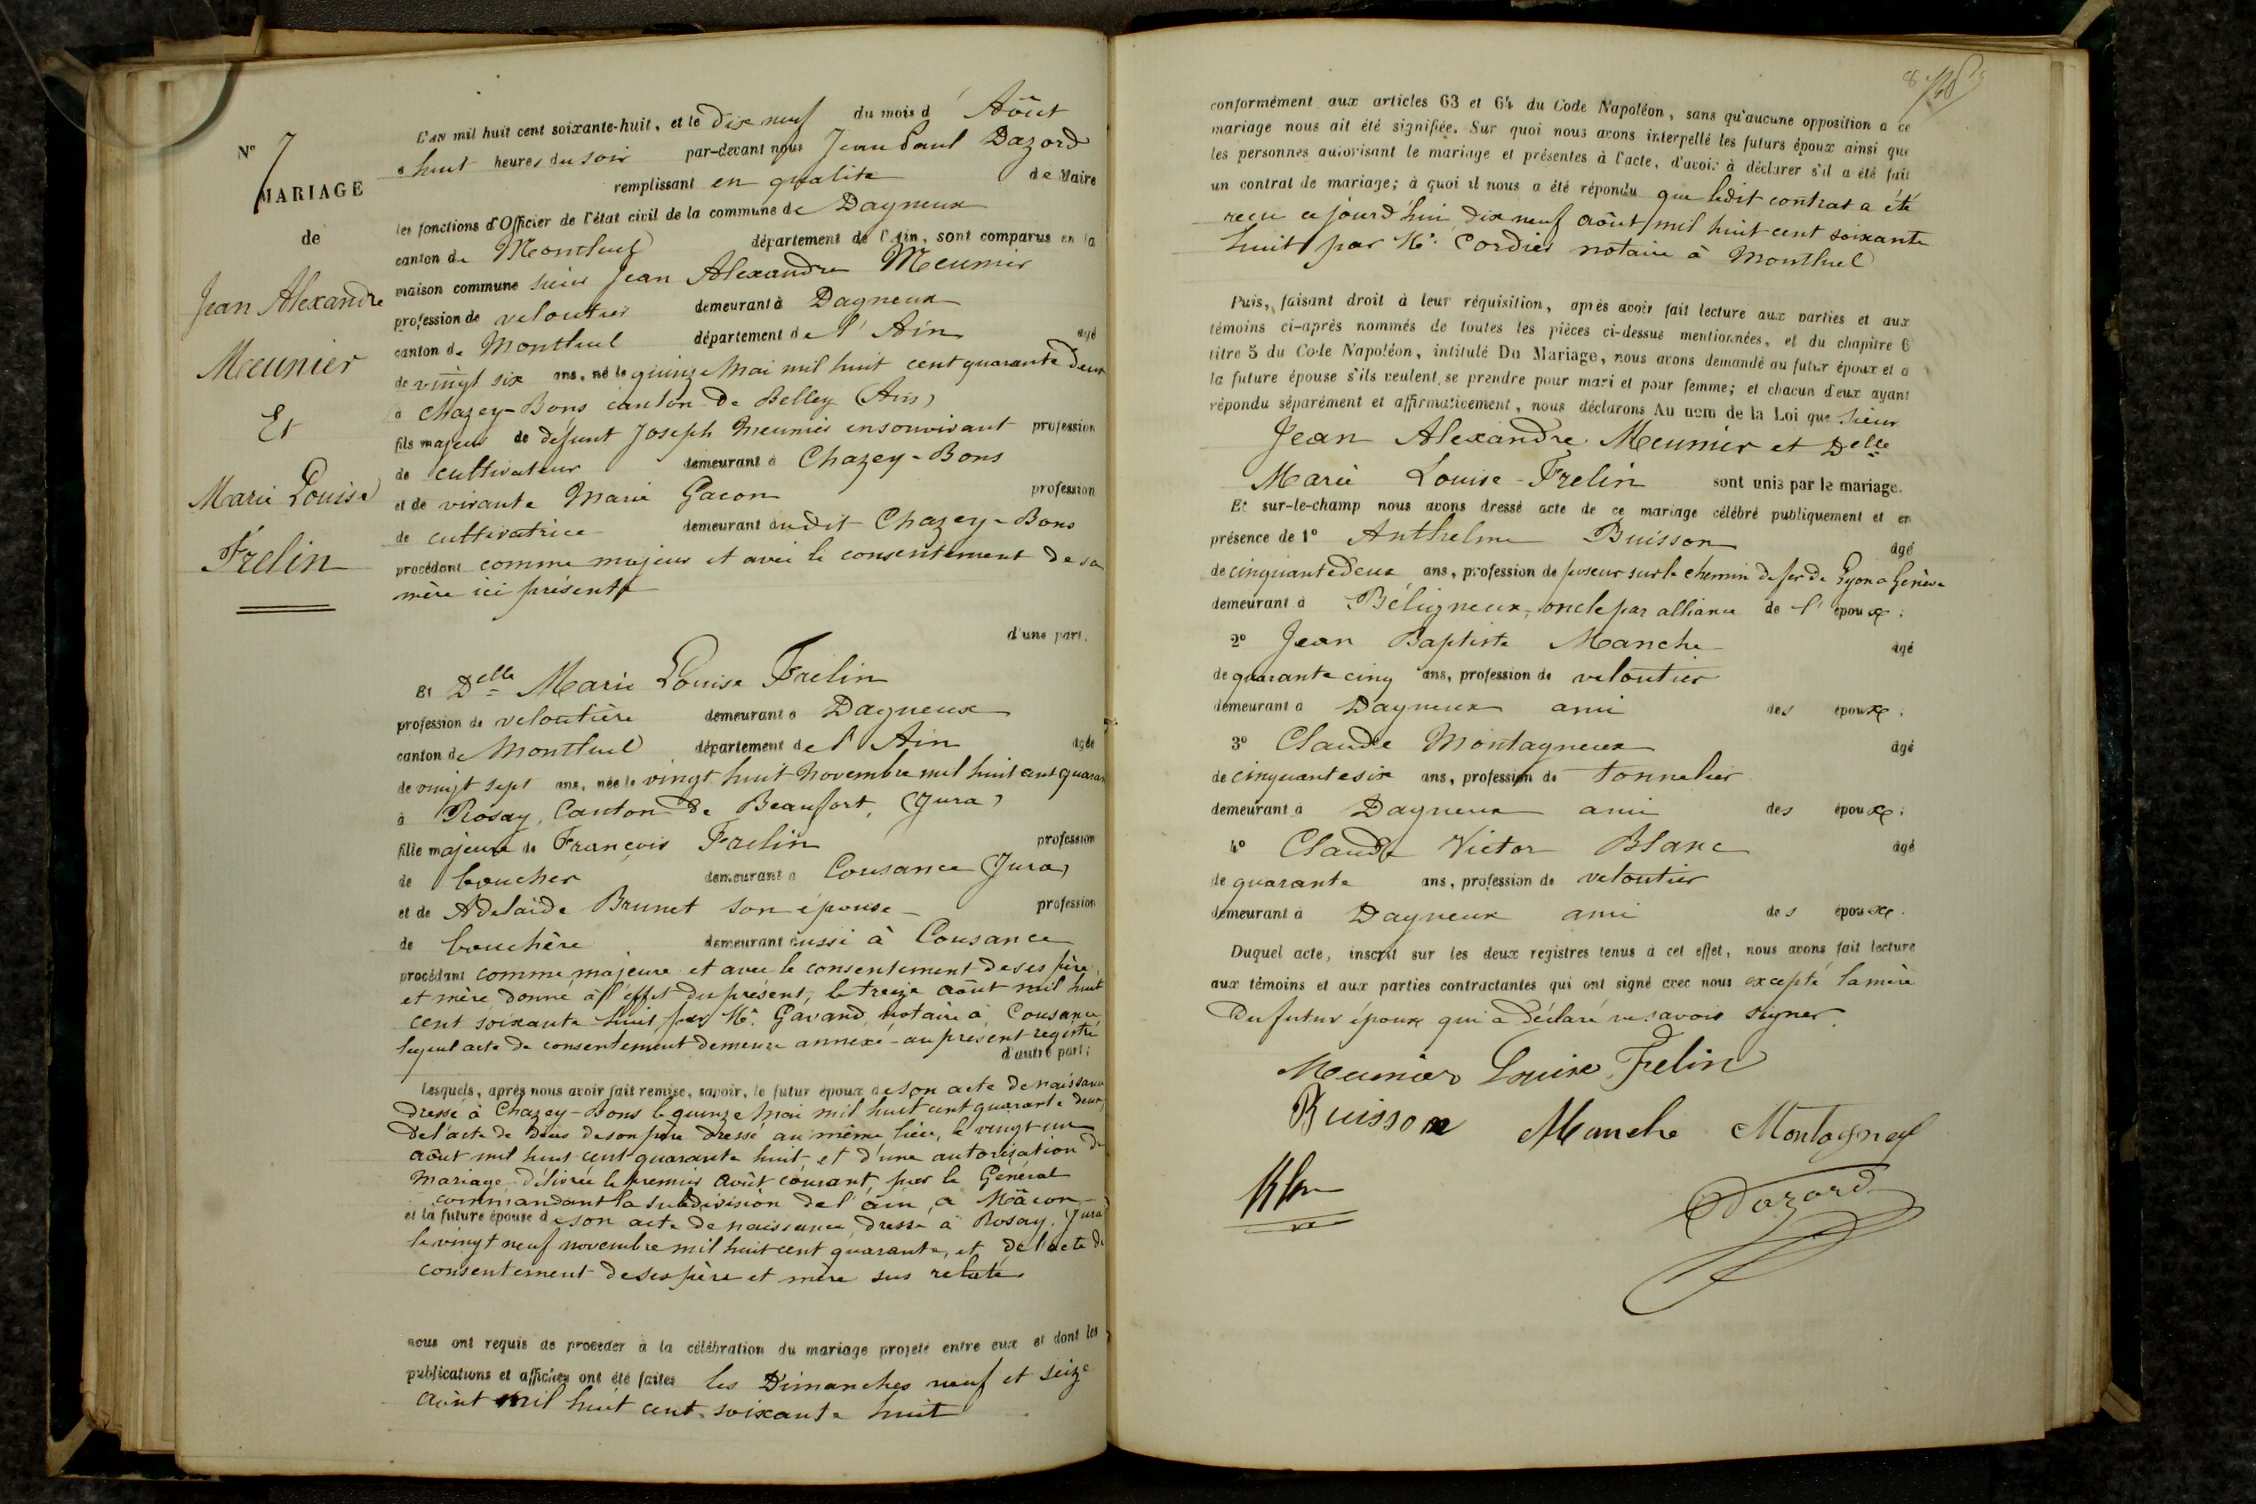 N° 7
MARIAGE
de
Jean Alexandre
Meunier
Et
Marie Louise
Frelin
L'an mil huit cent soixante-huit, et le dix neuf du mois d' Août
à huit heures du soir par-devant nous Jean Paul Dazord
remplissant en qualité de Maire
les fonctions d'Officier de l'état civil de la commune de Dagneux
canton de Montluel département de l'Ain, sont comparus en la
maison commune sieur Jean Alexandre Meunier
profession de veloutier demeurant à Dagneux
canton de Montluel département de l' Ain âgé
de vingt six ans, né le quinze Mai mil huit cent quarante deux
à Chazey-Bons canton de Belley (Ain)
fils majeur de défunt Joseph Meunier en son vivant profession
de cultivateur demeurant à Chazey-Bons
et de vivante Marie Gacon profession
de cultivatrice demeurant audit Chazey-Bons
procédant comme majeur et avec le consentement de sa
mère ici présente
d'une part.
Et Delle Marie Louise Frelin
profession de veloutière demeurant à Dagneux
canton de Montluel département de l' Ain âgée
de vingt sept ans, née le vingt huit Novembre mil huit cent quaran
à Rosay, Canton de Beaufort, (Jura)
fille majeure de François Frelin profession
de boucher demeurant à Cousance (Jura)
et de Adelaïde Brunet son épouse profession
de bouchère demeurant aussi à Cousance
procédant comme majeure et avec le consentement de ses père
et mère donné à l'effet du présent, le treize août mil huit
cent soixante huit, par Me. Gavand notaire à Cousance
lequel acte de consentement demeure annexé au présent registre
d'autre part;
Lesquels, après nous avoir fait remise, savoir, le futur époux de son acte de naissance
dressé à Chazey-Bons le quinze Mai mil huit cent quarante deux,
de l'acte de décès de son père dressé au même lieu, le vingt un
août mil huit cent quarante huit, et d'une autorisation de
Mariage délivrée le premier Août courant, par le Général
commandant la subdivision de l'ain, à Mâcon
et la future épouse de son acte de naissance, dressé à Rosay, (Jura
le vingt neuf novembre mil huit cent quarante, et de l'acte de
consentement de ses père et mère sus relaté
nous ont requis de procéder à la célébration du mariage projeté entre eux et dont les
publications et affiches ont été faites les Dimanches neuf et seize
août mil huit cent soixante huit
conformément aux articles 63 et 64 du Code Napoléon, sans qu'aucune opposition à ce
mariage nous ait été signifiée. Sur quoi nous avons interpellé les futurs époux ainsi que
les personnes autorisant le mariage et présentes à l'acte, d'avoir à déclarer s'il a été fait
un contrat de mariage; à quoi il nous a été répondu que ledit contrat a été
reçu ce jourd'hui dix neuf août mil huit cent soixante
huit par Me. Cordier notaire à Montluel
Puis, faisant droit à leur réquisition, après avoir fait lecture aux parties et aux
témoins ci-après nommés de toutes les pièces ci-dessus mentionnées, et du chapitre 6
titre 5 du Code Napoléon, intitulé Du Mariage, nous avons demandé au futur époux et à
la future épouse s'ils veulent se prendre pour mari et pour femme; et chacun d'eux ayant
répondu séparément et affirmativement, nous déclarons Au nom de la Loi que Sieur
Jean Alexandre Meunier et Delle
Marie Louise Frelin sont unis par le mariage.
Et sur-le-champ nous avons dressé acte de ce mariage célébré publiquement et en
présence de 1° Anthelme Buisson âgé
de cinquante deux ans, profession de poseur sur le chemin de fer de Lyon à Genève
demeurant à Béligneux, oncle par alliance de l' époux;
2° Jean Baptiste Manche âgé
de quarante cinq ans, profession de veloutier
demeurant à Dagneux ami des époux;
3° Claude Montagneux âgé
de cinquante six ans, profession de tonnelier
demeurant à Dagneux ami des époux;
4° Claude Victor Blanc âgé
de quarante ans, profession de veloutier
demeurant à Dagneux ami des époux.
Duquel acte, inscrit sur les deux registres tenus à cet effet, nous avons fait lecture
aux témoins et aux parties contractantes qui ont signé avec nous excepté la mère
du futur époux qui a déclaré ne savoir signer.
Meunier Louise Frelin
Buisson Manche Montagneux
Dazord